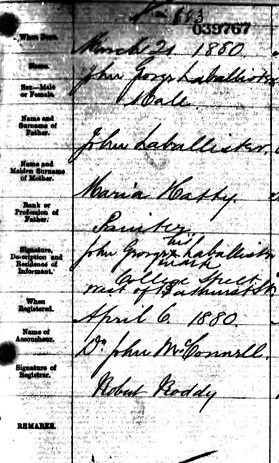 N- 883
039767
When Born.
March 21 1880.
Name.
John George Laballister
Sex—Male or Female.
Male.
Name and Surname of Father.
John Laballister.
Name and Maiden Surname of Mother.
Maria Hatty.
Rank or Profession of Father.
Painter.
Signature, Description and Residence of Informant.
his
John George x Laballister
mark
College Street
west of Bathurst St
When Registered.
April 6 1880.
Name of Accoucheur.
Dr John McConnell.
Signature of Registrar.
Robert Roddy
REMARKS.